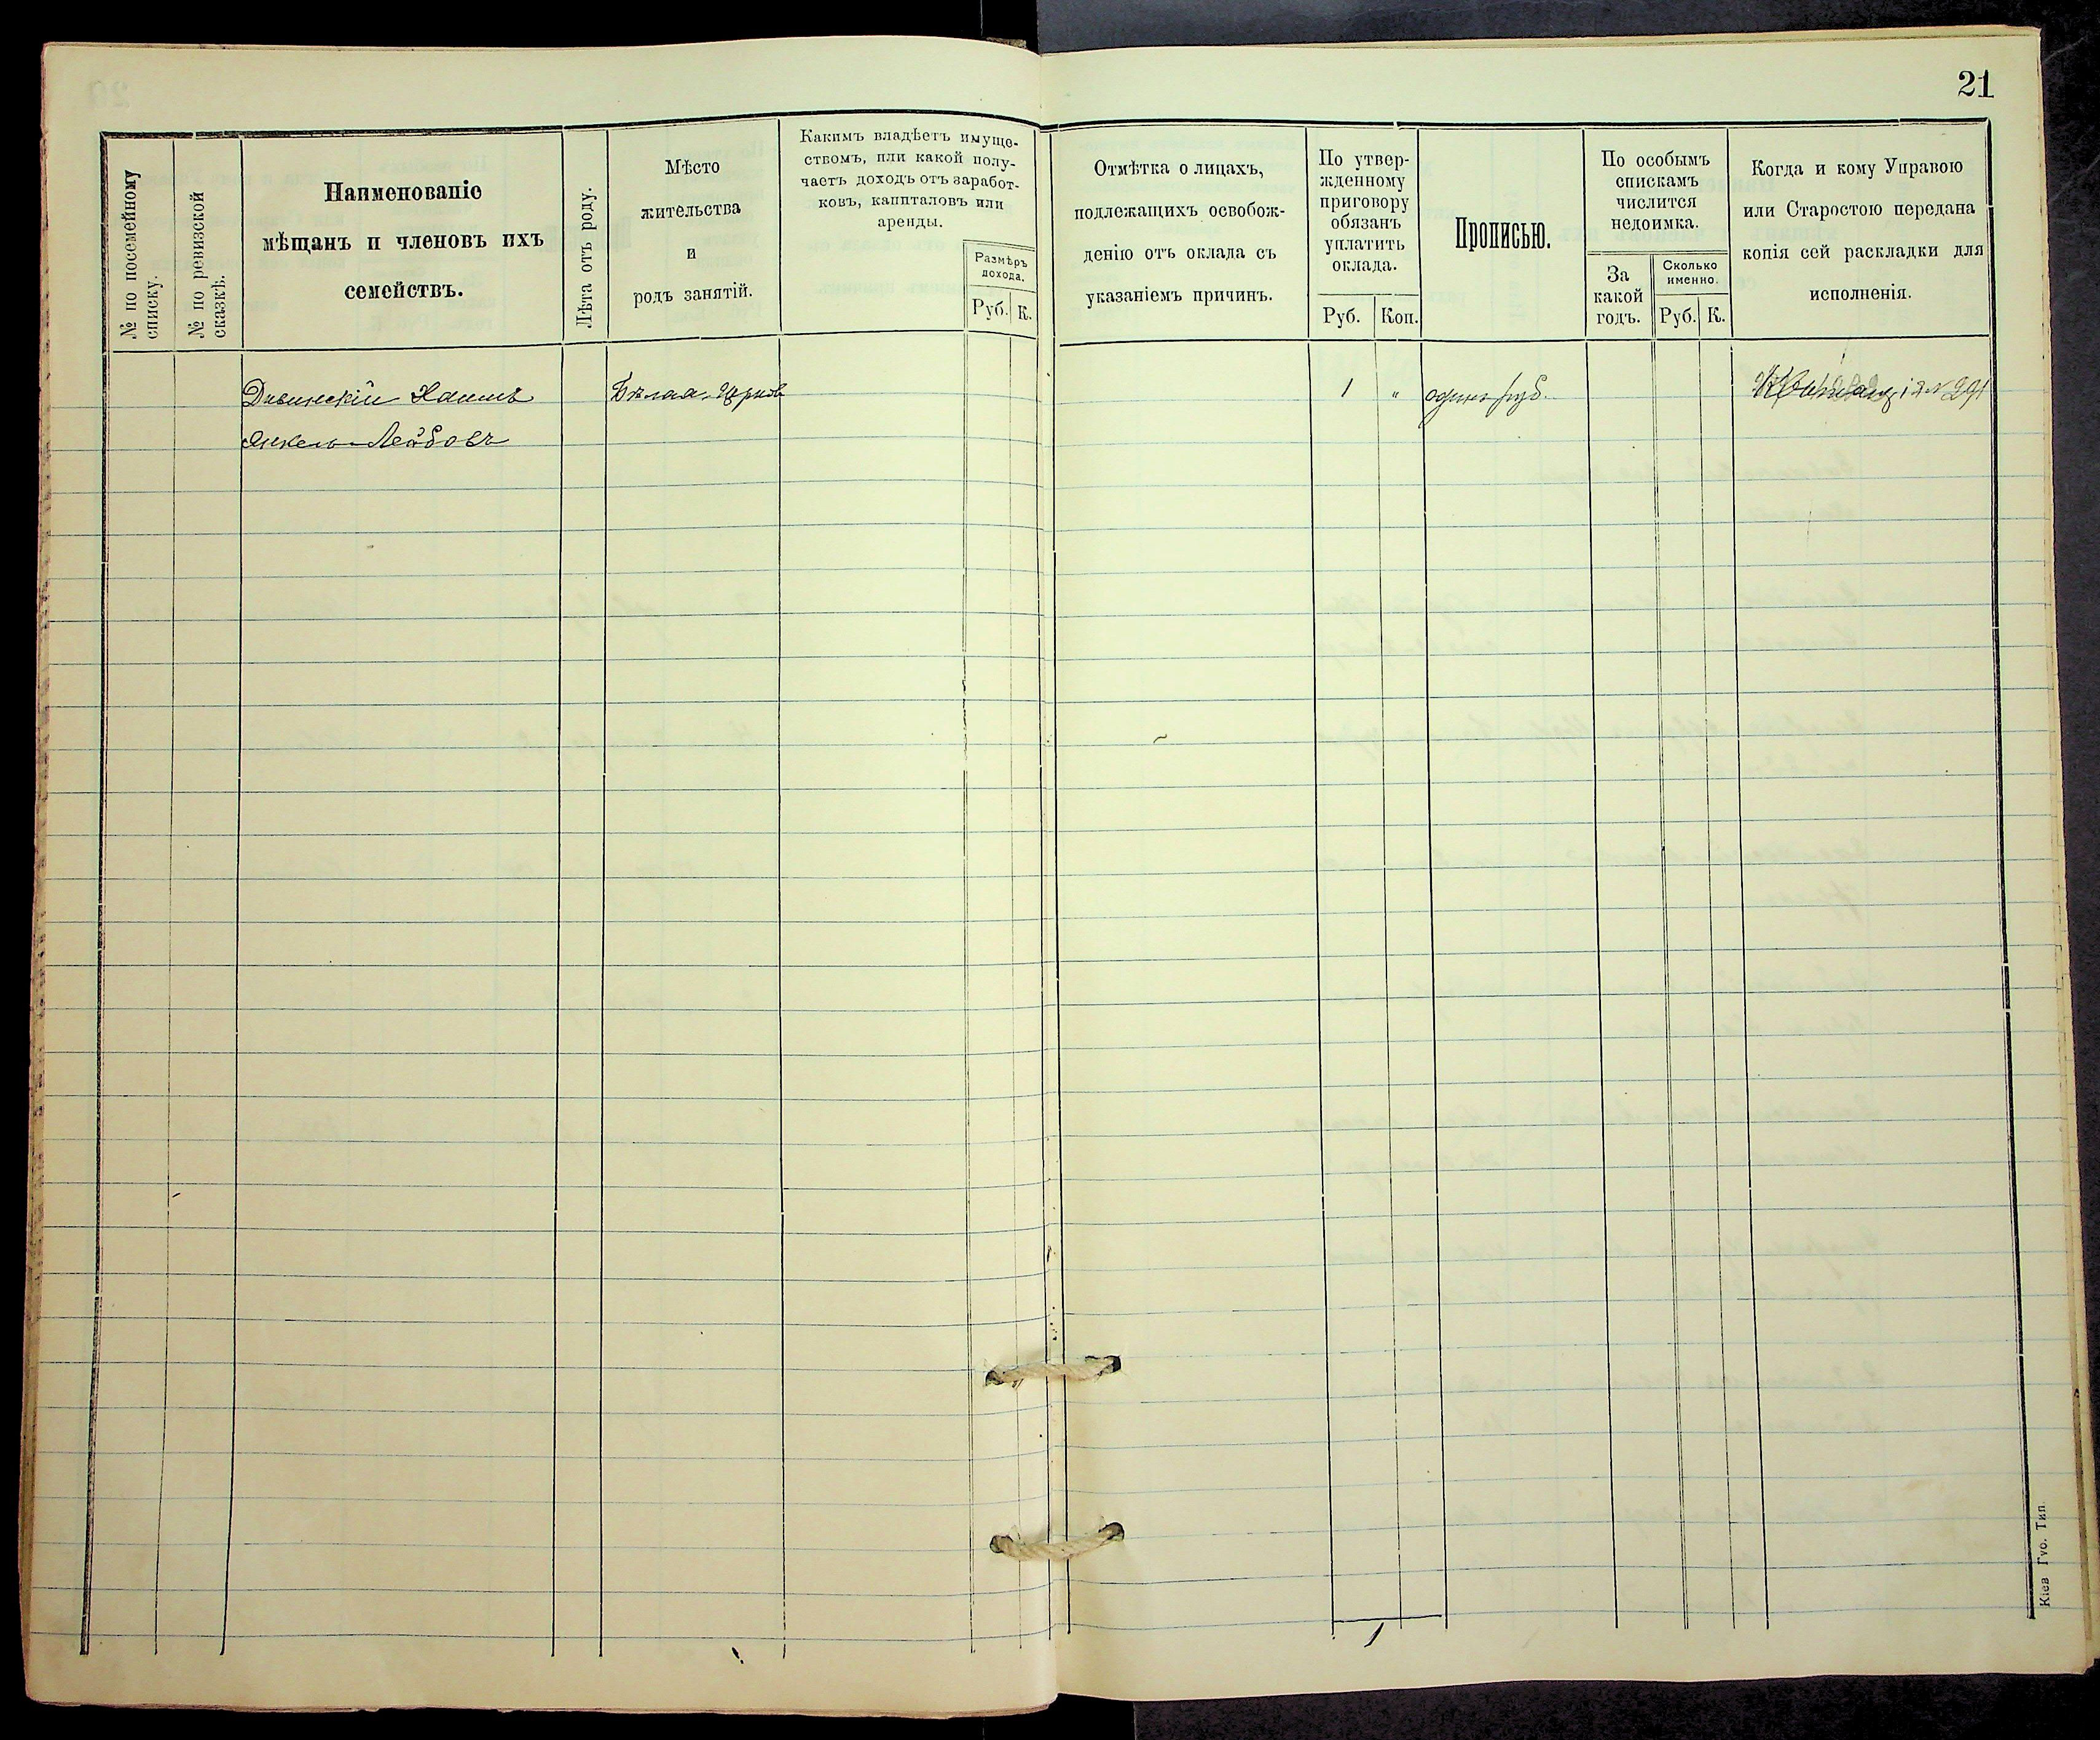 21
№ по посемейному
списку.
№ по ревизской
сказкѣ.
Наименованіе
мѣщанъ и членовъ ихъ
семействъ.
Лѣта отъ роду.
Мѣсто
жительства
и
родъ занятій.
Какимъ владѣетъ имуще-
ствомъ, или какой полу-
чаетъ доходъ отъ заработ-
ковъ, капиталовъ или
аренды.
Размѣръ
дохода.
Руб. К.
Отмѣтка о лицахъ,
подлежащихъ освобож-
денію отъ оклада съ
указаніемъ причинъ.
По утвер-
жденному
приговору
обязанъ
уплатить
оклада.
Руб. Коп.
Прописью.
По особымъ
спискамъ
числится
недоимка.
За
какой
годъ.
Сколько
именно.
Руб. К.
Когда и кому Управою
или Старостою передана
копія сей раскладки для
исполненія.
Хаимъ Бѣлая-Церковь 1 " одинъ руб. № 291
Янкель-Лейбовъ
1
Кіев Губ. Тип.